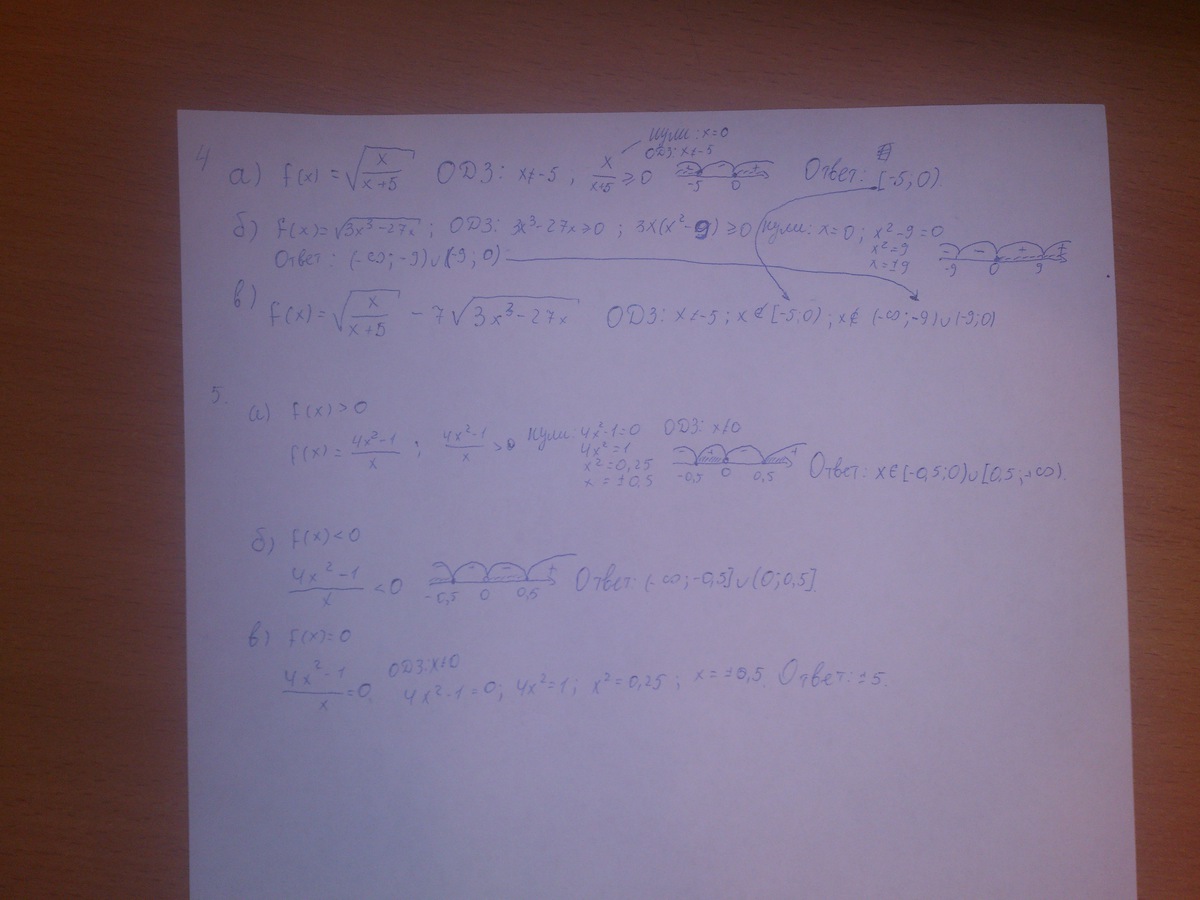 4
нули: x=0
ОДЗ: x≠-5
а) f(x) = √(x/(x+5)) ОДЗ: x≠-5, x/(x+5) ≥ 0 + - + -5 0 Ответ: [-5; 0).
б) f(x)=√(3x³-27x); ОДЗ: 3x³-27x≥0; 3x(x²-9) ≥0 нули: x=0; x²-9=0
x²=9
x=±9
- - + + -9 0 9
Ответ: (-∞; -9)∪(-9; 0)
в) f(x)= √(x/(x+5)) - 7√(3x³-27x) ОДЗ: x≠-5; x∉[-5;0); x∉ (-∞;-9)∪(-9;0)
5.
а) f(x)>0
f(x)= (4x²-1)/x ; (4x²-1)/x >0 нули: 4x²-1=0 ОДЗ: x≠0
4x²=1
x²=0,25
x=±0,5
-0,5 0 0,5 Ответ: x∈[-0,5;0)∪[0,5;+∞).
б) f(x)<0
(4x²-1)/x <0 -0,5 0 0,5 Ответ: (-∞;-0,5]∪(0;0,5].
в) f(x)=0
ОДЗ: x≠0
(4x²-1)/x =0. 4x²-1=0; 4x²=1; x²=0,25; x=±0,5. Ответ: ±5.